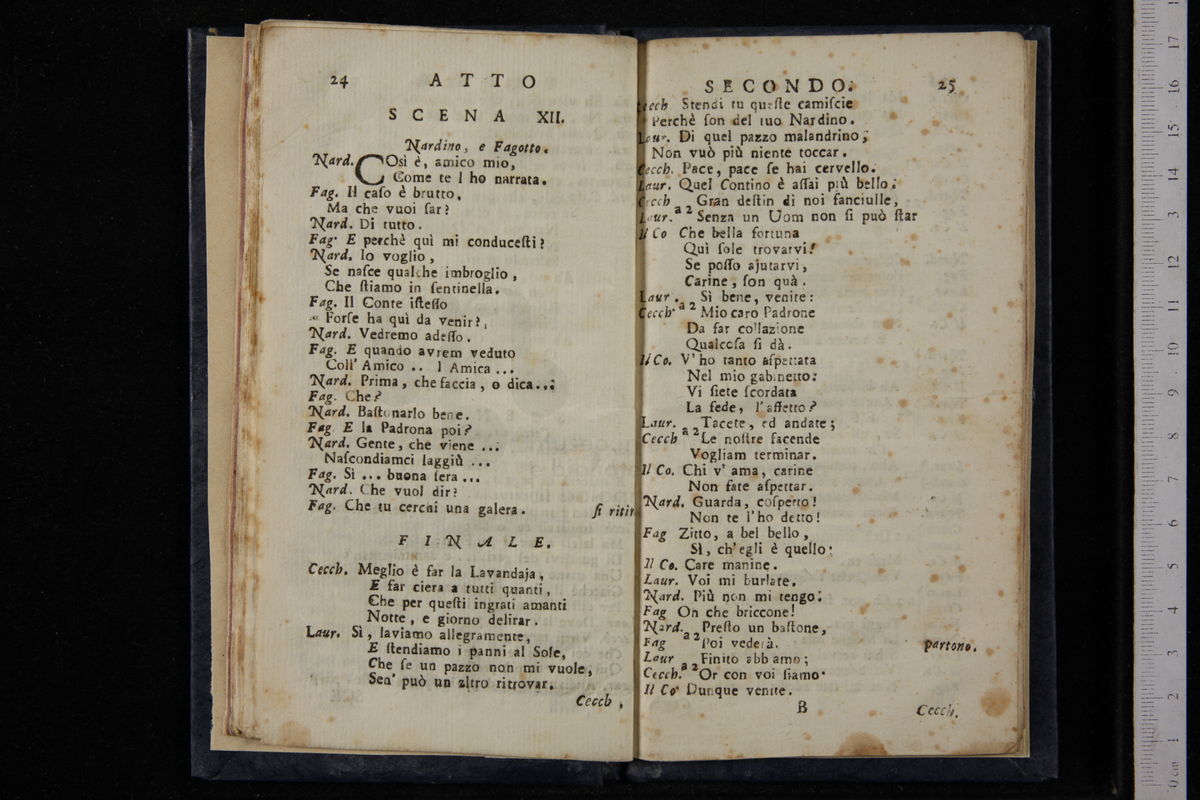 24 ATTO
SCENA XII.
Nardino, e Fagotto.
Nard. COsì è, amico mio,
Come te l ho narrata.
Fag. Il caſo è brutto,
Ma che vuoi far?
Nard. Di tutto.
Fag. E perchè quì mi conduceſti?
Nard. Io voglio,
Se naſce qualche imbroglio,
Che ſtiamo in ſentinella.
Fag. Il Conte iſteſſo
Forſe ha quì da venir?
Nard. Vedremo adeſſo.
Fag. E quando avrem veduto
Coll' Amico .. l Amica ...
Nard. Prima, che faccia, o dica...
Fag. Che?
Nard. Baſtonarlo bene.
Fag E la Padrona poi?
Nard. Gente, che viene ...
Naſcondiamci laggiù ...
Fag. Sì ... buona ſera ...
Nard. Che vuol dir?
Fag. Che tu cerchi una galera. ſi ritir
FINALE.
Cecch. Meglio è far la Lavandaja,
E far ciera a tutti quanti,
Che per queſti ingrati amanti
Notte, e giorno delirar.
Laur. Sì, laviamo allegramente,
E ſtendiamo i panni al Sole,
Che ſe un pazzo non mi vuole,
Sen' può un altro ritrovar.
Cecch,
SECONDO. 25
Cecch Stendi tu queſte camiſcie
Perchè ſon del tuo Nardino.
Laur. Di quel pazzo malandrino,
Non vuò più niente toccar.
Cecch. Pace, pace ſe hai cervello.
Laur. Quel Contino è aſſai più bello.
Cecch a 2 Gran deſtin di noi fanciulle,
Laur. Senza un Uom non ſi può ſtar
Il Co Che bella fortuna
Quì ſole trovarvi!
Se poſſo ajutarvi,
Carine, ſon quà.
Laur. a 2 Sì bene, venite:
Cecch. Mio caro Padrone
Da far collazione
Qualcoſa ſi dà.
Il Co. V' ho tanto aſpettata
Nel mio gabinetto:
Vi ſiete ſcordata
La fede, l'affetto?
Laur. a 2 Tacete, ed andate;
Cecch Le noſtre facende
Vogliam terminar.
Il Co. Chi v' ama, carine
Non fate aſpettar.
Nard. Guarda, coſpetto!
Non te l'ho detto!
Fag Zitto, a bel bello,
Sì, ch'egli è quello.
Il Co. Care manine.
Laur. Voi mi burlate.
Nard. Più non mi tengo.
Fag Oh che briccone!
Nard. a 2 Preſto un baſtone,
Fag Poi vederà. partono.
Laur a 2 Finito abbiamo;
Cecch. Or con voi ſiamo.
Il Co. Dunque venite.
B Cecch.
0 cm 1 2 3 4 5 6 7 8 9 10 11 12 13 14 15 16 17